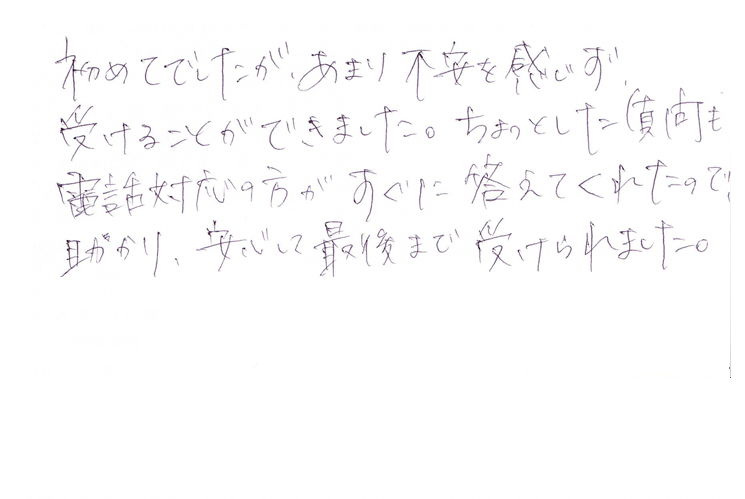 初めてでしたが、あまり不安を感じず、
受けることができました。ちょっとした質問も
電話対応の方がすぐに答えてくれたので
助かり、安心して最後まで受けられました。